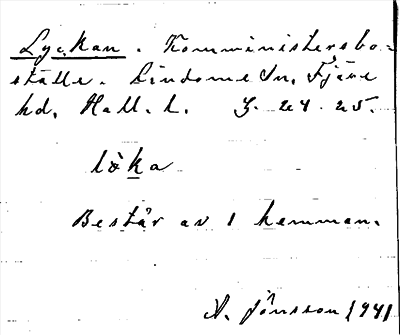 Lyckan. Komministersbo-
ställe. Lindome Sn, Fjäre
hd, Hall. l. J. 24. 25.
lò̀ka
Består av 1 hemman.
A. Jönsson 1941